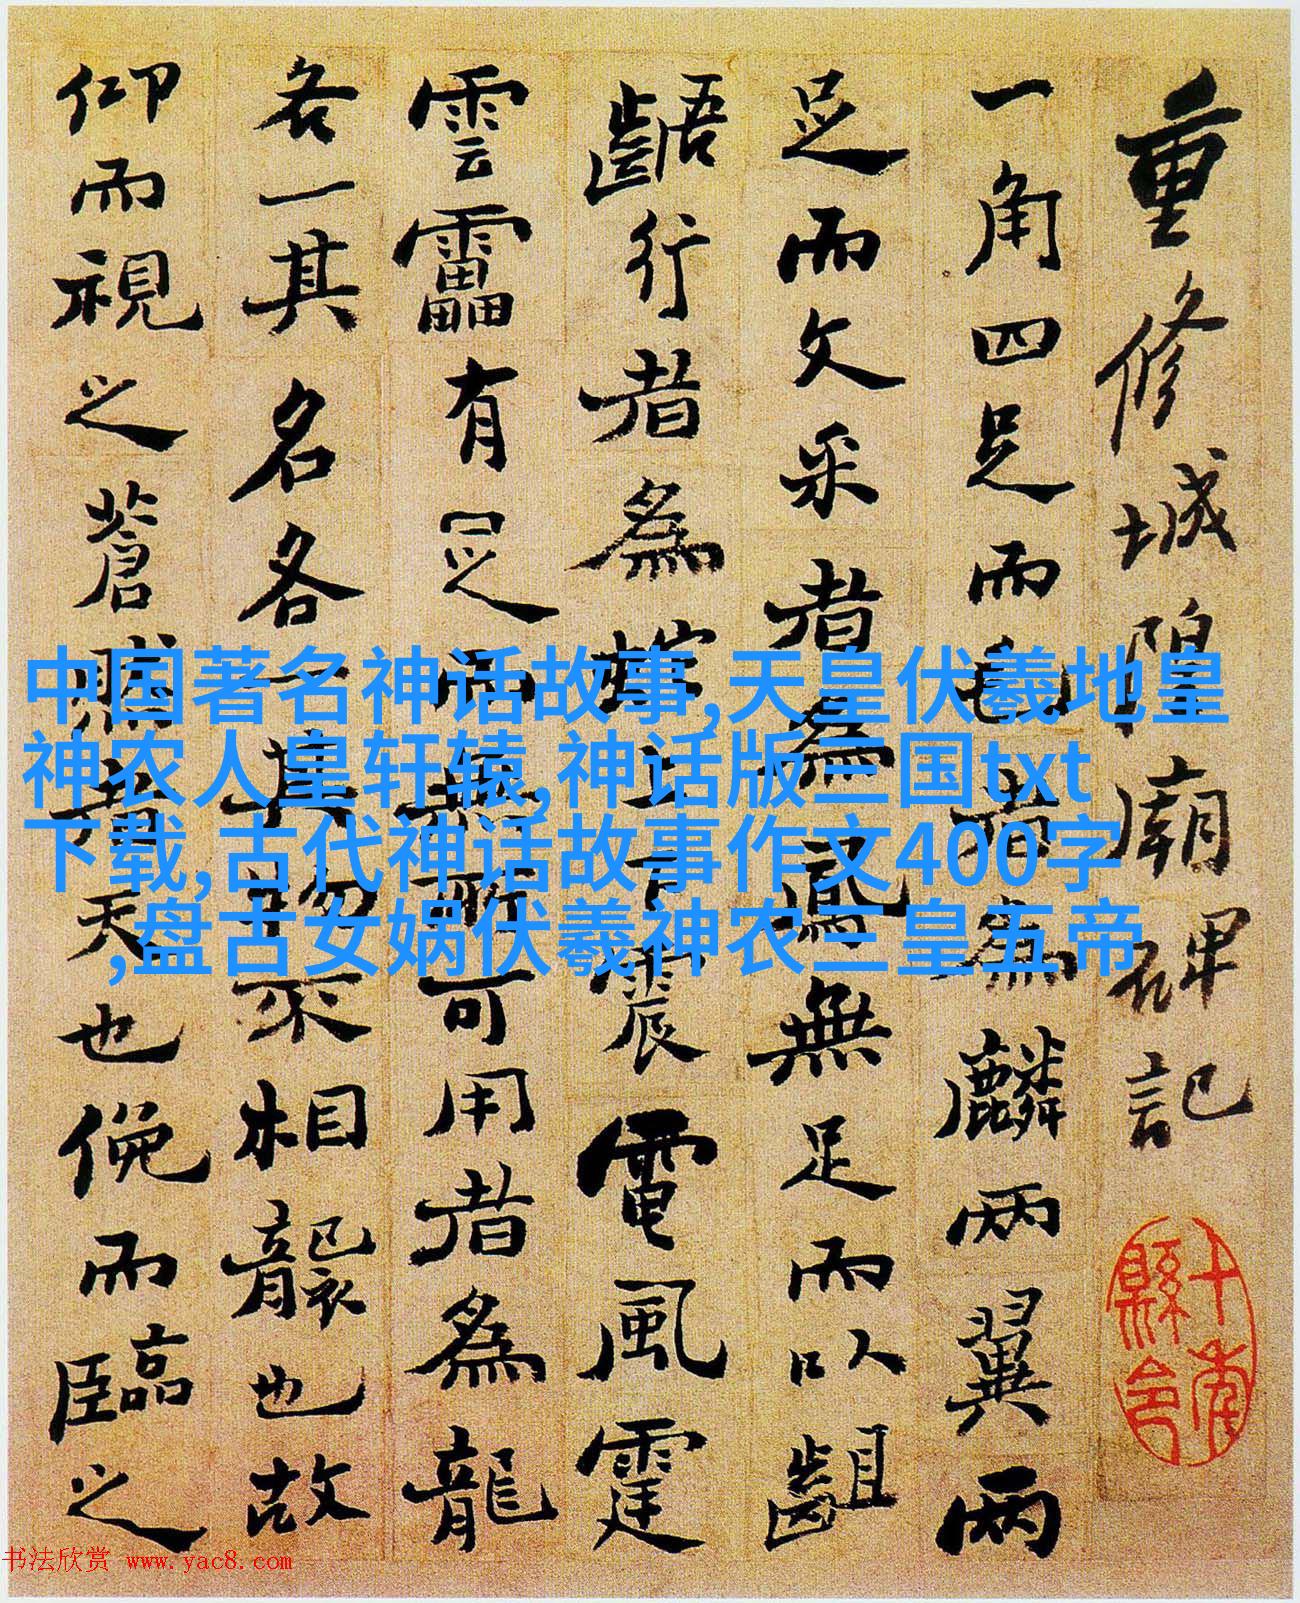 重修城隍廟碑記
一角四足而毛者為麟兩翼兩
足而文采者為鳳無足而以齟
齬行者為蛇上下震電風霆
雲靁有足而無所可用者為龍
各一其名各一其物不相襲也故
仰而視之蒼然者天也俛而臨之
中国著名神话故事,天皇伏羲地皇
神农人皇轩辕,神话版三国txt
下载,古代神话故事作文400字
,盘古女娲伏羲神农三皇五帝
书法欣赏 www.yac8.com